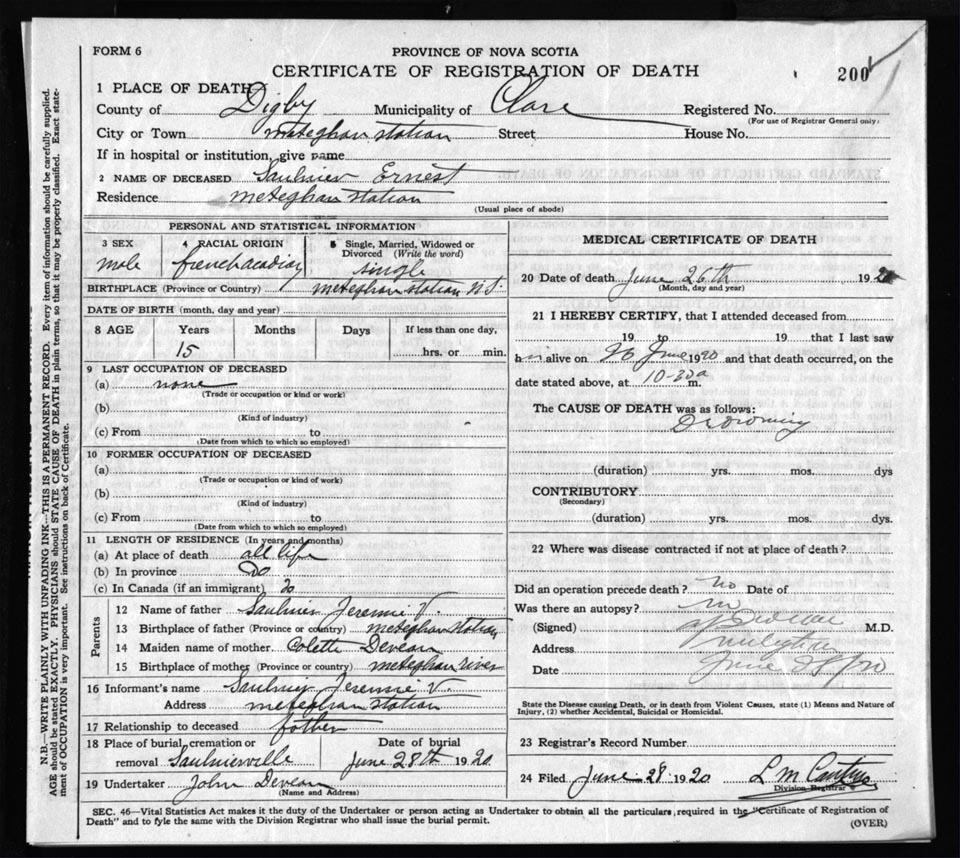 FORM 6
PROVINCE OF NOVA SCOTIA
CERTIFICATE OF REGISTRATION OF DEATH
200
1 PLACE OF DEATH
County of Digby Municipality of Clare Registered No.
(For use of Registrar General only)
City or Town Meteghan Station Street House No.
If in hospital or institution, give name
2 NAME OF DECEASED Saulnier Ernest
Residence Meteghan Station
(Usual place of abode)
PERSONAL AND STATISTICAL INFORMATION
3 SEX male
4 RACIAL ORIGIN french acadian
5 Single, Married, Widowed or Divorced (Write the word) single
BIRTHPLACE (Province or Country) Meteghan Station N.S.
DATE OF BIRTH (month, day and year)
8 AGE Years Months Days If less than one day,
15 hrs. or min.
9 LAST OCCUPATION OF DECEASED
(a) none
(Trade or occupation or kind or work)
(b)
(Kind of industry)
(c) From to
(Date from which to which so employed)
10 FORMER OCCUPATION OF DECEASED
(a)
(Trade or occupation or kind of work)
(b)
(Kind of industry)
(c) From to
(Date from which to which so employed)
11 LENGTH OF RESIDENCE (In years and months)
(a) At place of death all life
(b) In province Do
(c) In Canada (if an immigrant) Do
Parents
12 Name of father Saulnier Jeremie V.
13 Birthplace of father (Province or country) Meteghan Station
14 Maiden name of mother Colette Deveau
15 Birthplace of mother (Province or country) Meteghan River
16 Informant's name Saulnier Jeremie V.
Address Meteghan Station
17 Relationship to deceased father
18 Place of burial, cremation or removal Saulnierville Date of burial June 28th 1920
19 Undertaker John Deveau
(Name and Address)
MEDICAL CERTIFICATE OF DEATH
20 Date of death June 26th 1920
(Month, day and year)
21 I HEREBY CERTIFY, that I attended deceased from
19 to 19 that I last saw
h alive on 26 June 1920 and that death occurred, on the
date stated above, at 10-30 a m.
The CAUSE OF DEATH was as follows:
Drowning
(duration) yrs. mos. dys
CONTRIBUTORY
(Secondary)
(duration) yrs. mos. dys.
22 Where was disease contracted if not at place of death?
Did an operation precede death? no Date of
Was there an autopsy? no
(Signed) M.D.
Address
Date June 28/20
State the Disease causing Death, or in death from Violent Causes, state (1) Means and Nature of
Injury, (2) whether Accidental, Suicidal or Homicidal.
23 Registrar's Record Number
24 Filed June 28 1920 L M
Division Registrar
SEC. 46—Vital Statistics Act makes it the duty of the Undertaker or person acting as Undertaker to obtain all the particulars, required in the "Certificate of Registration of
Death" and to fyle the same with the Division Registrar who shall issue the burial permit.
(OVER)
N.B.—WRITE PLAINLY WITH UNFADING INK—THIS IS A PERMANENT RECORD. Every item of information should be carefully supplied.
AGE should be stated EXACTLY. PHYSICIANS should STATE CAUSE OF DEATH in plain terms, so that it may be properly classified. Exact state-
ment of OCCUPATION is very important. See instructions on back of Certificate.